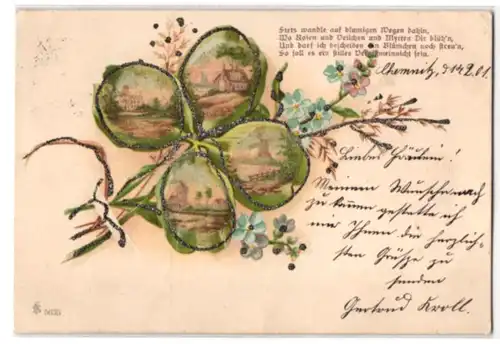 Stets wandle auf blumigen Wegen dahin,
Wo Rosen und Veilchen und Myrten Dir blüh'n,
Und darf ich bescheiden ein Blümchen noch streu'n,
So soll es ein stilles Vergissmeinnicht sein.
Chemnitz, d 14.2.01.
Liebes Fräulein!
Meinem Wunsche nach
zu kommen gestatte ich
mir Ihnen die herzlich-
sten Grüße zu
senden
Gertrud Kroll.